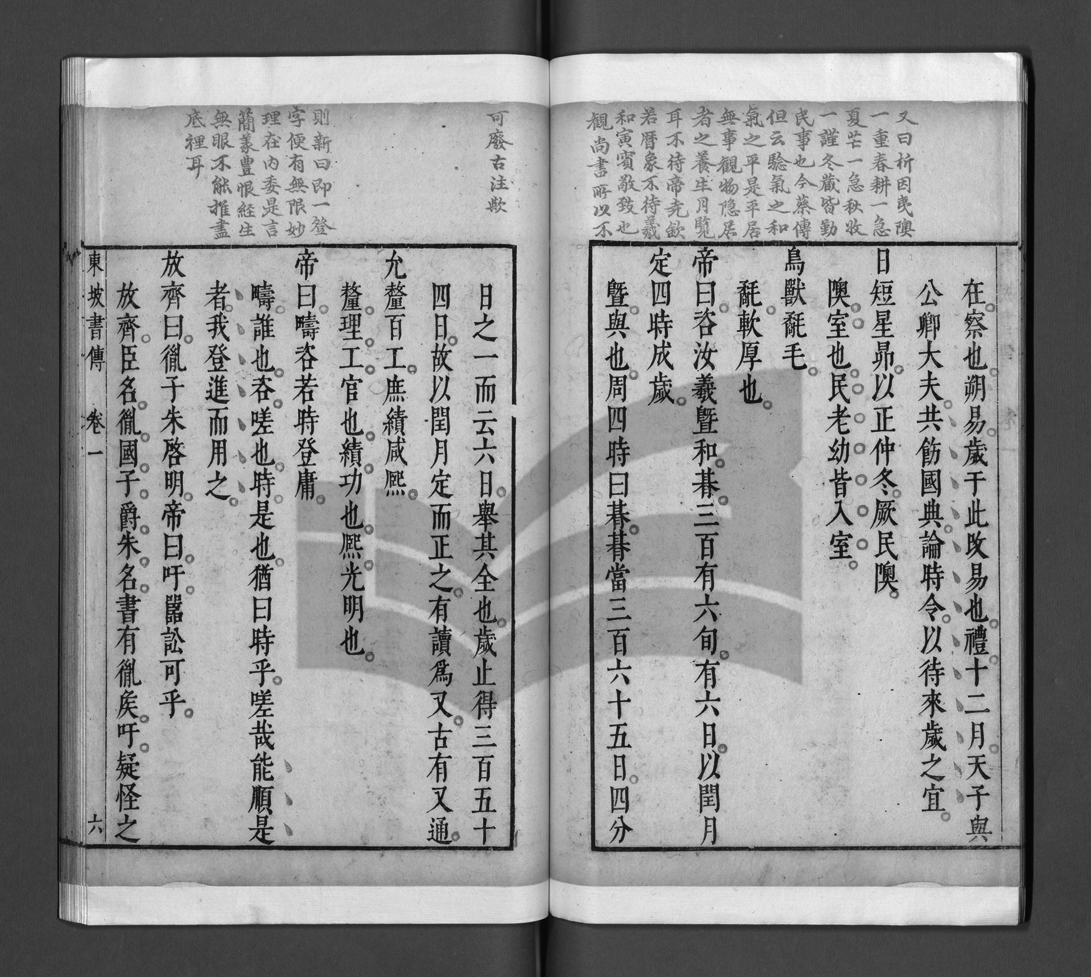 又曰析因夷隩
一重春耕一急
夏芒一急秋收
一謹冬藏皆勤
民事也今蔡傳
但云驗氣之和
氣之平是平居
無事觀物隱居
者之養生月覽
耳不待帝堯欽
若曆象不待羲
和寅賓敬致也
觀尚書所以不
在察也朔易歲于此改易也禮十二月天子與
公卿大夫共飭國典論時令以待來歲之宜
日短星昴以正仲冬厥民隩
隩室也民老幼皆入室
鳥獸氄毛
氄軟厚也
帝曰咨汝羲曁和朞三百有六旬有六日以閏月
定四時成歲
曁與也周四時曰朞朞當三百六十五日四分
可廢古注歟
則新曰即一登
字便有無限妙
理在內委是言
簡義豐恨經生
無眼不能推盡
底裡耳
日之一而云六日舉其全也歲止得三百五十
四日故以閏月定而正之有讀爲又古有又通
允釐百工庶績咸熈
釐理工官也績功也熈光明也
帝曰疇咨若時登庸
疇誰也咨嗟也時是也猶曰時乎嗟哉能順是
者我登進而用之
放齊曰胤子朱啓明帝曰吁嚚訟可乎
放齊臣名胤國子爵朱名書有胤矦吁疑怪之
東坡書傳 卷一 六